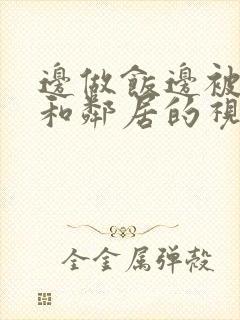 邊做飯邊被
和鄰居的視
全金属弹殻